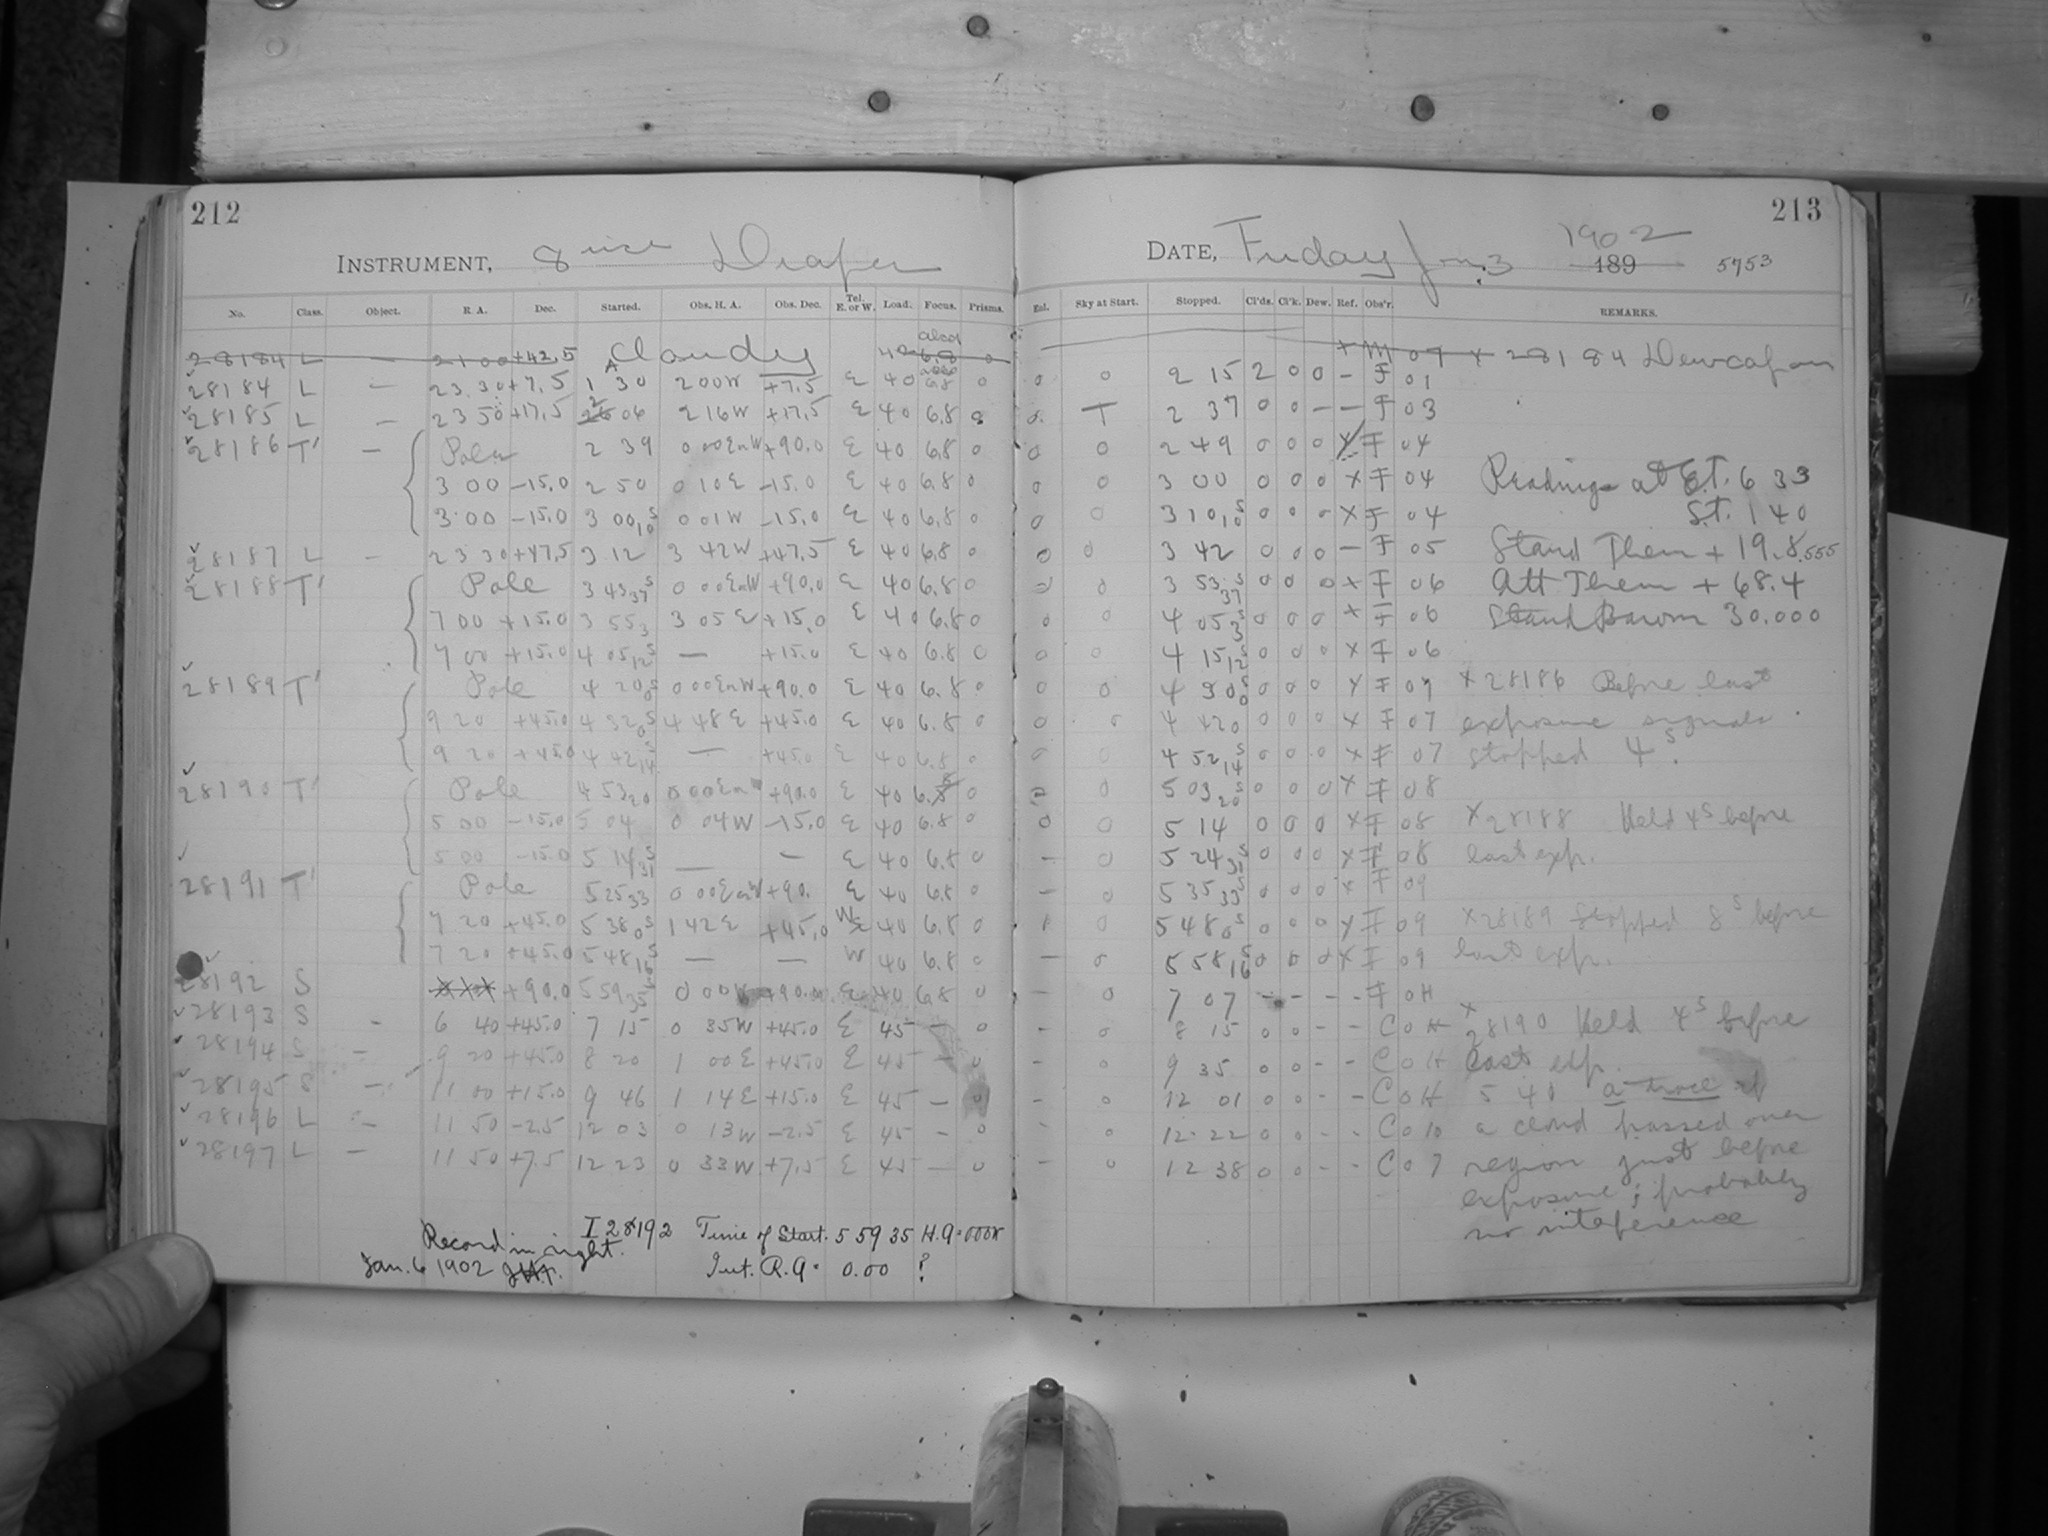 212
213
INSTRUMENT, 8 inch Draper
DATE, Friday Jan. 3 1902 189 5753
No. Class. Object. R. A. Dec. Started. Obs. H. A. Obs. Dec. Tel. E. or W. Load. Focus. Prisms.
Exl. Sky at Start. Stopped. Cl'ds. Cl'k. Dew. Ref. Obs'r. REMARKS.
28184 L — 21 00 +42.5 Cloudy 40 6.8 0
28184
28184 L — 23 30 +7.5 1 30 2 00W +7.5 E 40 6.8 0 0 0 2 15 2 0 0 – F 01
28185 L — 23 50 +17.5 2 06 2 16W +17.5 E 40 6.8 0 T 2 37 0 0 – – F 03
28186 T' — Pole 2 39 0 00E +90.0 E 40 6.8 0 0 0 2 49 0 0 0 X F 04
3 00 –15.0 2 50 0 10E –15.0 E 40 6.8 0 0 0 3 00 0 0 0 X F 04 Readings at E.T. 6 33
3 00 –15.0 3 00 10s 0 01W –15.0 E 40 6.8 0 0 0 3 10 10s 0 0 0 X F 04 S.T. 1 40
28187 L — 23 30 +47.5 3 12 3 42W +47.5 E 40 6.8 0 0 0 3 42 0 0 0 – F 05 Stand Them + 19.8.555
28188 T' Pole 3 43 37s 0 00E +90.0 E 40 6.8 0 0 3 53 37s 0 0 0 X F 06 Att Them + 68.4
7 00 +15.0 3 55 3 3 05E +15.0 E 40 6.8 0 0 0 4 05 3s 0 0 0 X F 06 Stand Barom 30.000
7 00 +15.0 4 05 12s — +15.0 E 40 6.8 0 0 0 4 15 12s 0 0 0 X F 06
28189 T' Pole 4 20 0s 0 00E +90.0 E 40 6.8 0 0 0 4 30 0s 0 0 0 X F 07 X 28186 Before last
9 20 +45.0 4 32 0s 4 48E +45.0 E 40 6.8 0 0 0 4 42 0 0 0 0 X F 07 exposure signals
9 20 +45.0 4 42 14s — +45.0 E 40 6.8 0 0 0 4 52 14s 0 0 0 X F 07 stopped 4s.
28190 T' Pole 4 53 20 0 00E +90.0 E 40 6.8 0 0 5 03 20s 0 0 0 X F 08
5 00 –15.0 5 04 0 04W –15.0 E 40 6.8 0 0 0 5 14 0 0 0 X F 08 X 28188 Held 4s before
5 00 –15.0 5 14 31s — — E 40 6.8 0 – 0 5 24 31s 0 0 0 X F 08 last exp.
28191 T' Pole 5 25 33 0 00E +90. E 40 6.8 0 – 0 5 35 33s 0 0 0 X F 09
7 20 +45.0 5 38 0s 1 42E +45.0 W 40 6.8 0 0 5 48 0s 0 0 0 X F 09 X 28189 Stopped 8s before
7 20 +45.0 5 48 16s — — W 40 6.8 0 – 0 5 58 16s 0 0 0 X F 09 last exp.
28192 S +90.0 5 59 35s 0 00W +90.0 E 40 6.8 0 – 0 7 07 – – – – F 0H
28193 S – 6 40 +45.0 7 15 0 35W +45.0 E 45 – 0 – 0 8 15 0 0 – – C 0H X 28190 Held 4s before
28194 S – 9 20 +45.0 8 20 1 00E +45.0 E 45 – 0 – 0 9 35 0 0 – – C 0H last exp.
28195 S – 11 00 +15.0 9 46 1 14E +15.0 E 45 – 0 – 0 12 01 0 0 – – C 0H 5 40 a trace of
28196 L – 11 50 –2.5 12 03 0 13W –2.5 E 45 – 0 – 0 12 22 0 0 – – C 010 a cloud passed over
28197 L – 11 50 +7.5 12 23 0 33W +7.5 E 45 – 0 – 0 12 38 0 0 – – C 07 region just before
exposure; probably
no inteference
I 28192 Time of Start. 5 59 35 H.A.
Record in right. Int. R.A. 0.00 ?
Jan. 6 1902